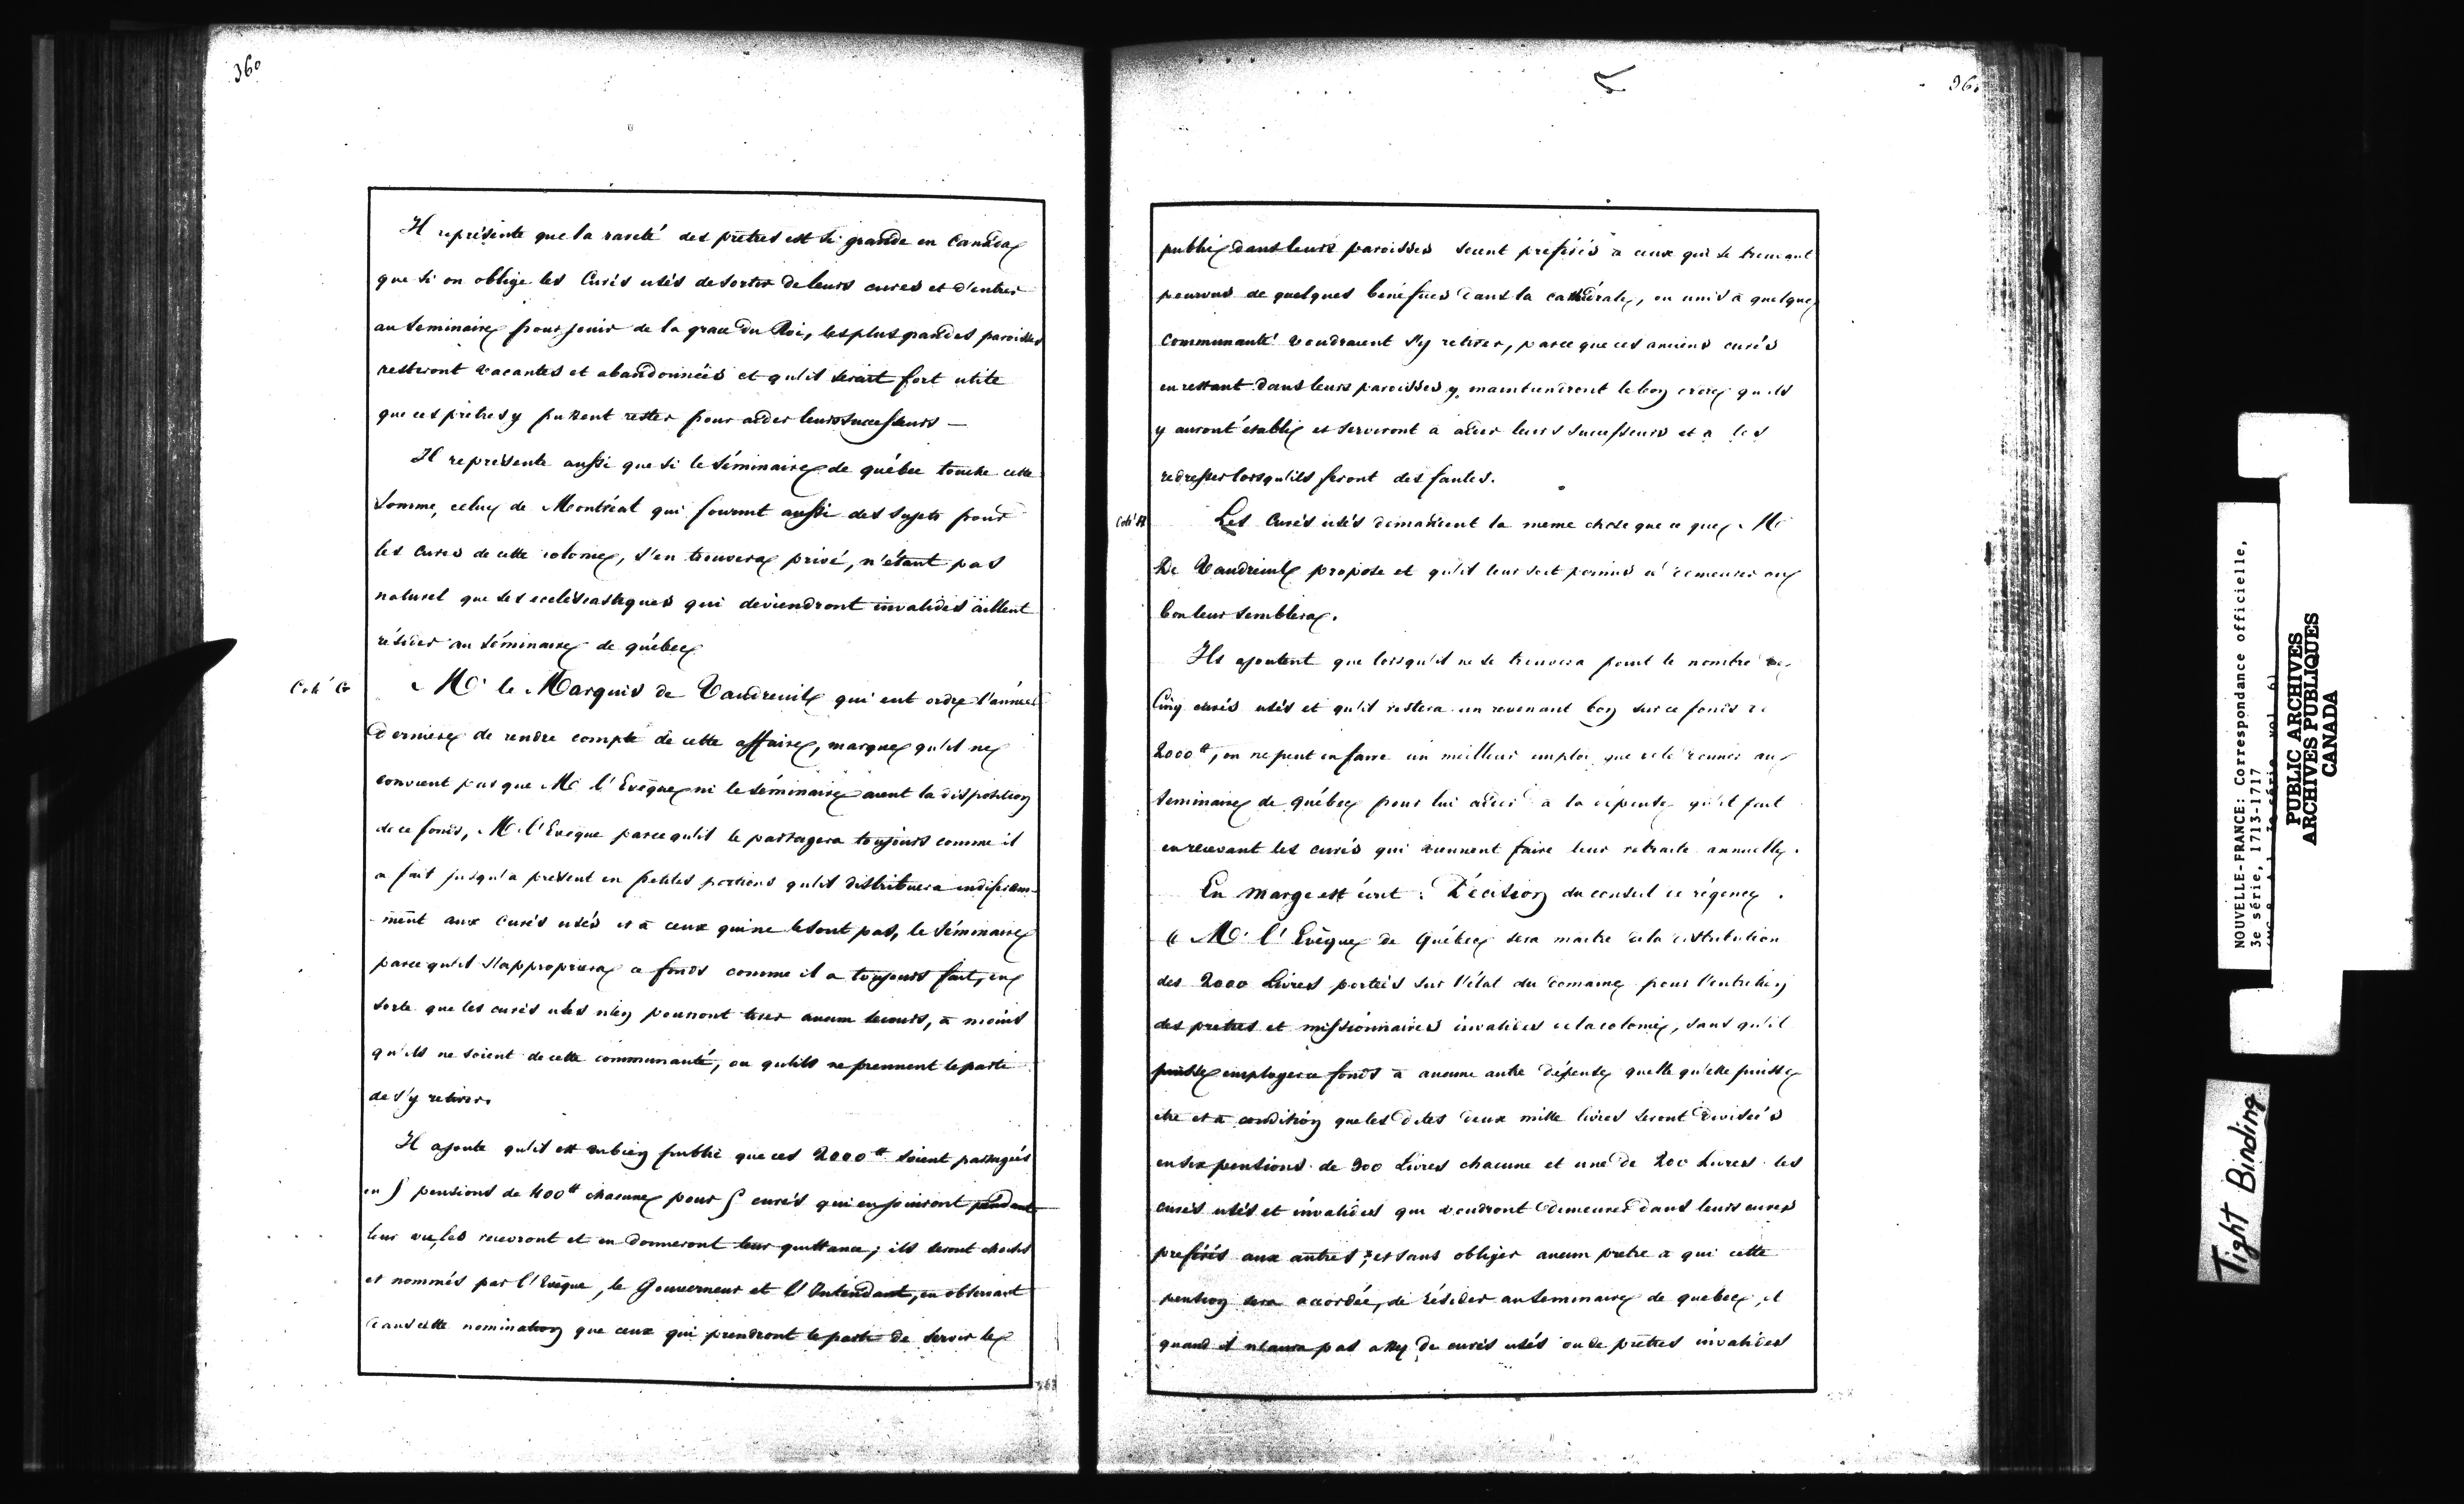 360
Il représente que la rareté des prêtres est si grande en Canada
que si on oblige les Curés usés de sortir de leurs cures et d'entrer
au Seminaire pour jouir de la grace du Roi, les plus grandes paroisses
resteront vacantes et abandonnées et qu'il serait fort utile
que ces prêtres y pussent rester pour aider leurs successeurs —
Il représente aussi que si le Séminaire de québec touche cette
somme, celuy de Montréal qui fournit aussi des sujets pour
les cures de cette colonie, s'en trouvera privé, n'étant pas
naturel que ses ecclésiastiques qui deviendront invalides aillent
résider au Séminaire de québec
Coté C
Mr le Marquis de Vaudreuil qui eut ordre l'année
dernière de rendre compte de cette affaire, marque qu'il ne
convient pas que Mr l'Evêque ni le Séminaire aient la disposition
de ce fonds, Mr l'Evêque parce qu'il le partagera toujours comme il
a fait jusqu'a présent en petites portions qu'il distribuera indiférem-
-ment aux curés usés et à ceux qui ne le sont pas, le Séminaire
parce qu'il s'appropriera ce fonds comme il a toujours fait, en
sorte que les curés usés n'en pourront tirer aucun secours, à moins
qu'ils ne soient de cette communauté, ou qu'ils ne prennent le parti
de s'y retirer.
Il ajoute qu'il est du bien public que ces 2000 tt soient partagées
en 5 pensions de 400 tt chacune pour 5 curés qui en jouiront pendant
leur vie, les recevront et en donneront leur quittance; ils seront choisis
et nommés par l'Evêque, le Gouverneur et l'Intendant, en observant
dans cette nomination que ceux qui prendront le parti de servir le
public dans leurs paroisses soient preférés à ceux qui se trouvant
pourvus de quelques bénéfices dans la cathédrale, ou unis à quelque
Communauté voudraient s'y retirer, parce que ces anciens curés
en restant dans leurs paroisses y maintiendront le bon ordre qu'ils
y auront établi et serviront à aider leurs successeurs et a les
redresser lorsqu'ils feront des fautes.
Coté
Les Curés usés demandent la meme chose que ce que Mr
De Vaudreuil propose et qu'il leur soit permis de demeurer ou
bon leur semblera.
Ils ajoutent que lorsqu'il ne se trouvera point le nombre de
Cinq curés usés et qu'il restera un revenant bon sur ce fonds de
2000 tt, on ne peut en faire un meilleur emploi que de le donner au
Seminaire de québec pour lui aider à la dépense qu'il fait
en recevant les curés qui viennent faire leur retraite annuelle.
En marge est écrit : Décision du conseil de régence.
« Mr l'Evêque de Québec sera maitre de la distribution
des 2000 Livres portées sur l'état du Domaine pour l'entretien
des pretres et missionnaires invalides de la colonie, sans qu'il
puisse employer ce fonds à aucune autre dépense quelle qu'elle puisse
etre et à condition que les dites deux mille livres seront divisées
en six pensions de 300 Livres chacune et une de 200 Livres les
curés usés et invalides qui voudront demeurer dans leurs cures
preférés aux autres, et sans obliger aucun pretre à qui cette
pension sera accordée, de résider au Seminaire de quebec, et
quand il n'aura pas assez de curés usés ou de prêtres invalides
NOUVELLE-FRANCE: Correspondance officielle,
3e série, 1713-1717
PUBLIC ARCHIVES
ARCHIVES PUBLIQUES
CANADA
Tight Binding